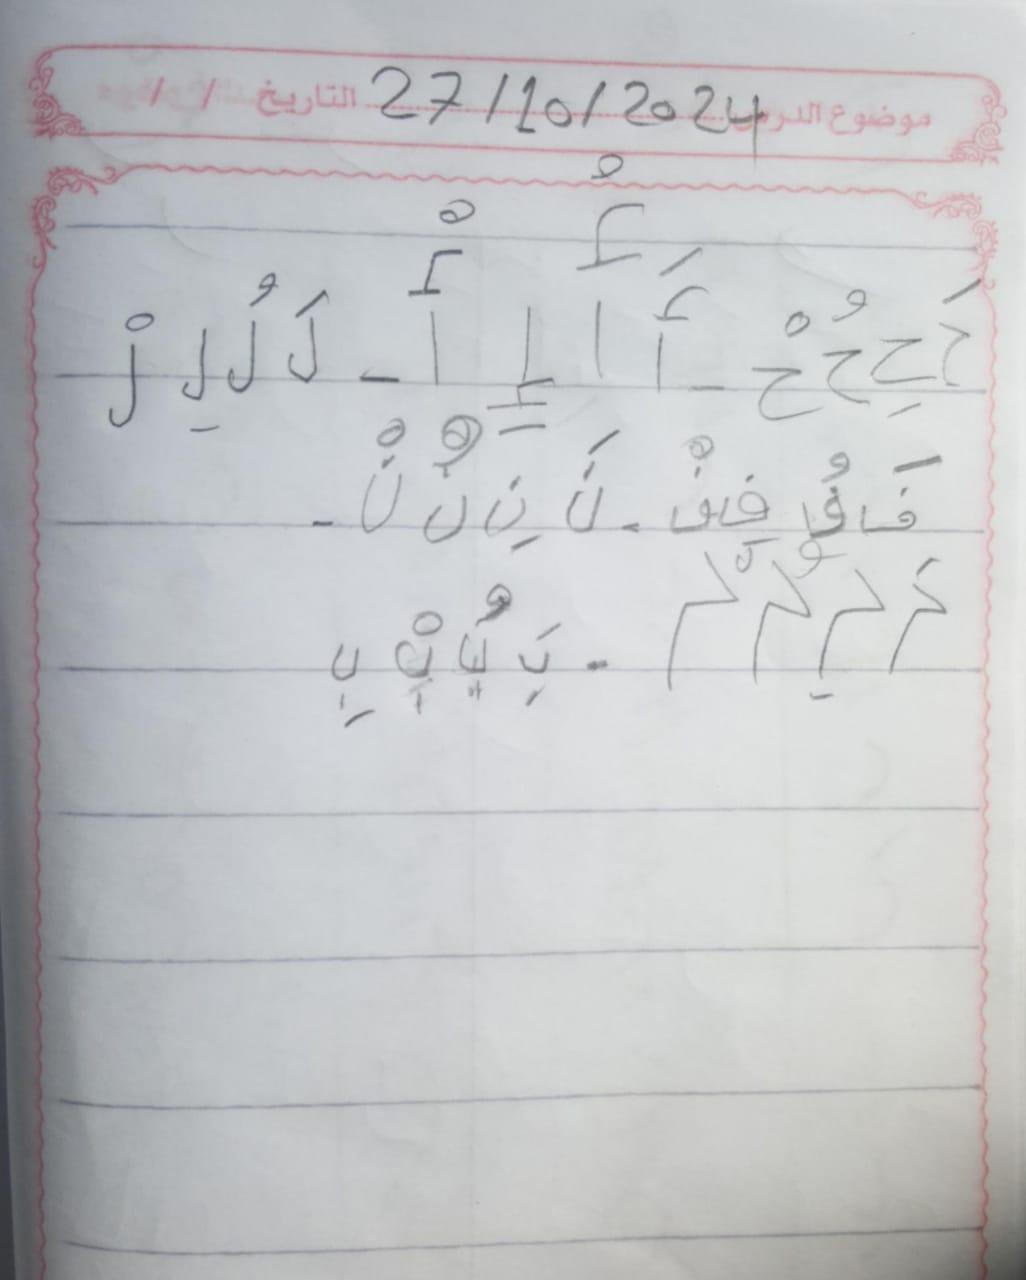 موضوع الدرس 27/10/2024 التاريخ / /
حَ حِ حُ حْ - أَ أُ إِ أْ - لَ لُ لِ لْ
فَ فُ فِ فْ - نَ نِ نُ نْ -
مَ مِ مُ مْ - بَ يُ بْ بِ